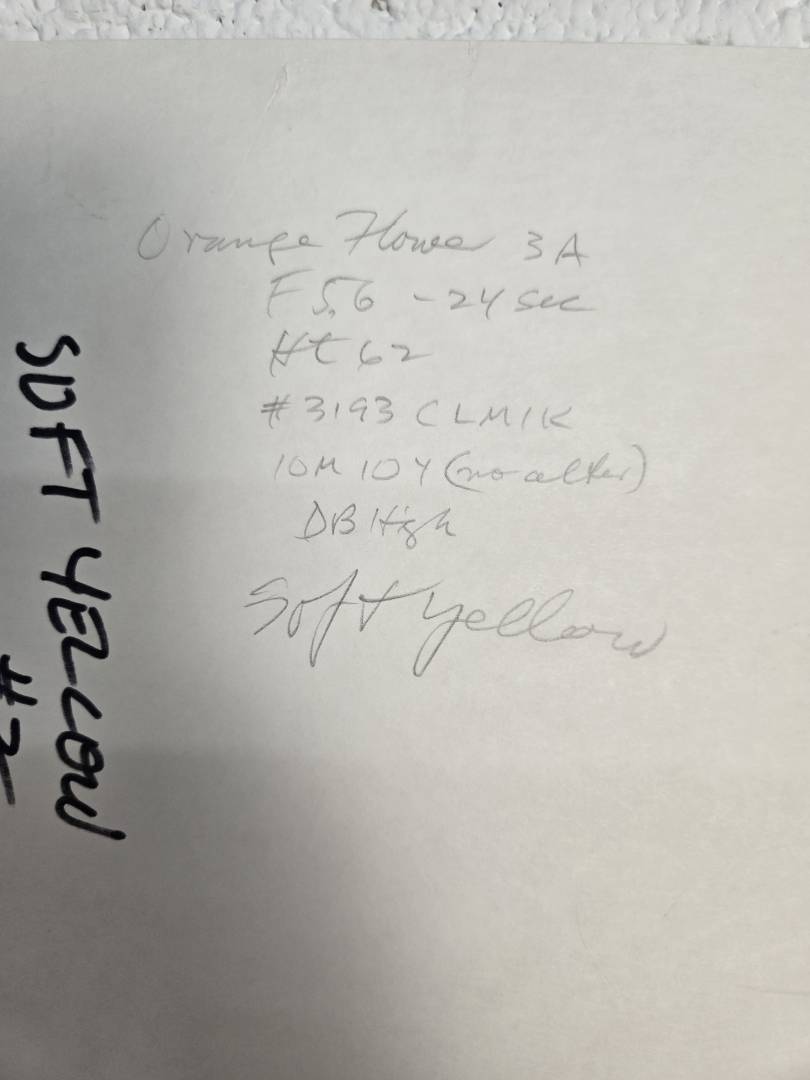 Orange Flower 3A
F5.6 - 24 sec
Ht 62
#3193 CLMIK
10M 10Y (no alter)
DB High
Soft yellow
SOFT YELLOW
#2